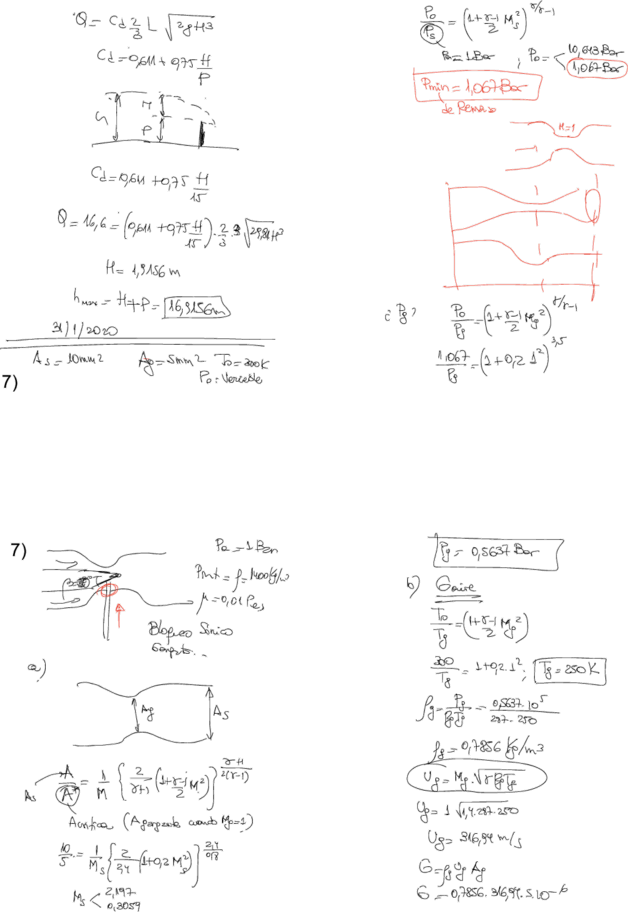 Q = Cd 2/3 L √2gH3
Cd = 0,611 + 0,75 H/P
H
P
Cd = 0,611 + 0,75 H/15
Q = 16,6 = (0,611 + 0,75 H/15) · 2/3 · 3 √2·9,81 H3
H = 1,9156 m
hmax = H + P = 16,9156 m
31/1/2020
As = 10 mm2 Ag = 5 mm2 To = 300 K
Po: Variable
7)
Po/Ps = (1 + γ-1/2 Ms2)γ/γ-1
Pa = 1 Bar ; Po = 10,643 Bar
1,067 Bar
Pmin = 1,067 Bar
de Remanso
M=1
¿ Pg ? Po/Pg = (1 + γ-1/2 Mg2)γ/γ-1
1,067/Pg = (1 + 0,2 · 12)3,5
7)
Pa = 1 Bar
ρ = 1400 Kg/
μ = 0,01 Pas
Bloqueo Sónico
Garganta...
a)
Ag
As
As
A/A* = 1/M {2/γ+1 (1 + γ-1/2 M2)}γ+1/2(γ-1)
Acritica (A garganta cuando Mg=1)
10/5 = 1/Ms {2/2,4 (1 + 0,2 Ms2)}2,4/0,8
Ms 2,197
0,3059
Pg = 0,5637 Bar
b) Gaire
To/Tg = (1 + γ-1/2 Mg2)
300/Tg = 1 + 0,2 · 12 ; Tg = 250 K
ρg = Pg/RgTg = 0,5637 · 105/287 · 250
ρg = 0,7856 Kg/m3
Ug = Mg · √γRgTg
Ug = 1 √1,4 · 287 · 250
Ug = 316,94 m/s
G = ρg Ug Ag
G = 0,7856 · 316,94 · 5 · 10-6